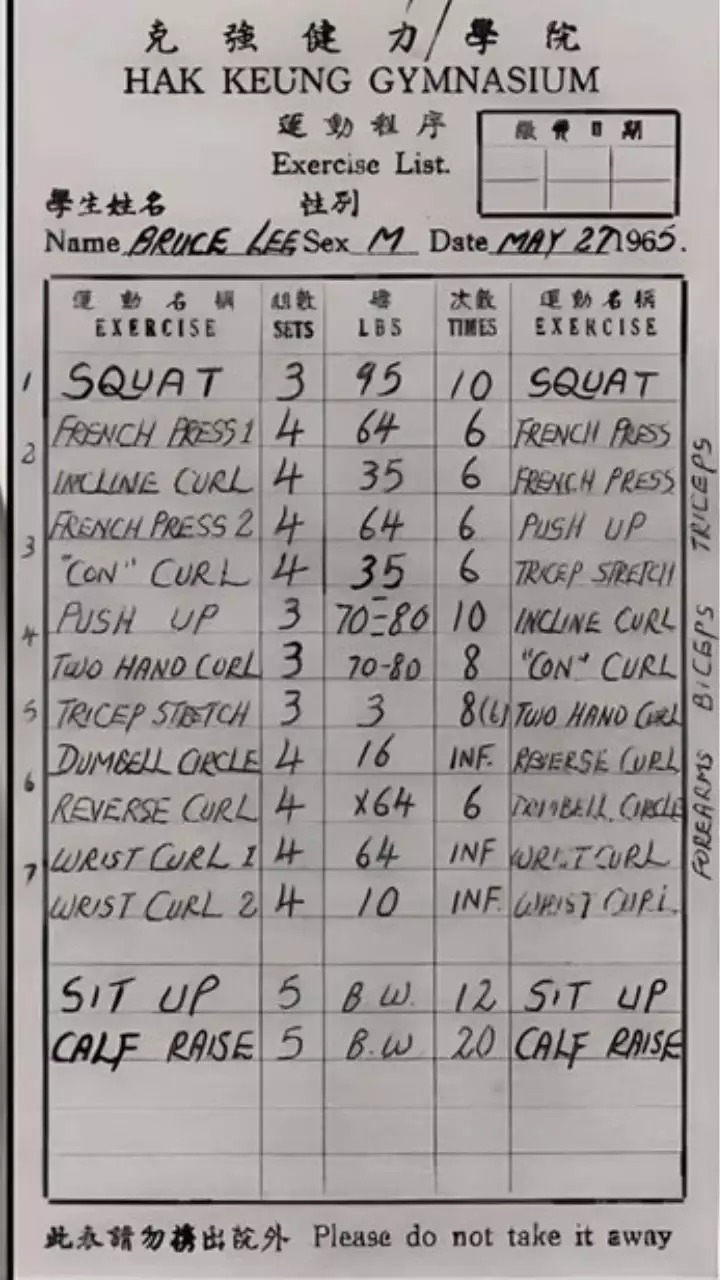 克強健力學院
HAK KEUNG GYMNASIUM
運動程序
繳費日期
Exercise List.
學生姓名 性別
Name BRUCE LEE Sex M Date MAY 27 1965.
運動名稱 組數 磅 次數 運動名稱
EXERCISE SETS LBS TIMES EXERCISE
1 SQUAT 3 95 10 SQUAT
2 FRENCH PRESS 1 4 64 6 FRENCH PRESS
INCLINE CURL 4 35 6 FRENCH PRESS
3 FRENCH PRESS 2 4 64 6 PUSH UP
"CON" CURL 4 35 6 TRICEP STRETCH
4 PUSH UP 3 70-80 10 INCLINE CURL
TWO HAND CURL 3 70-80 8 "CON" CURL
5 TRICEP STRETCH 3 3 8(6) TWO HAND CURL
DUMBELL CIRCLE 4 16 INF. REVERSE CURL
6 REVERSE CURL 4 x64 6 DUMBELL CIRCLE
7 WRIST CURL 1 4 64 INF WRIST CURL
WRIST CURL 2 4 10 INF. WRIST CURL
SIT UP 5 B.W. 12 SIT UP
CALF RAISE 5 B.W 20 CALF RAISE
TRICEPS
BICEPS
FOREARMS
此表請勿携出院外 Please do not take it away